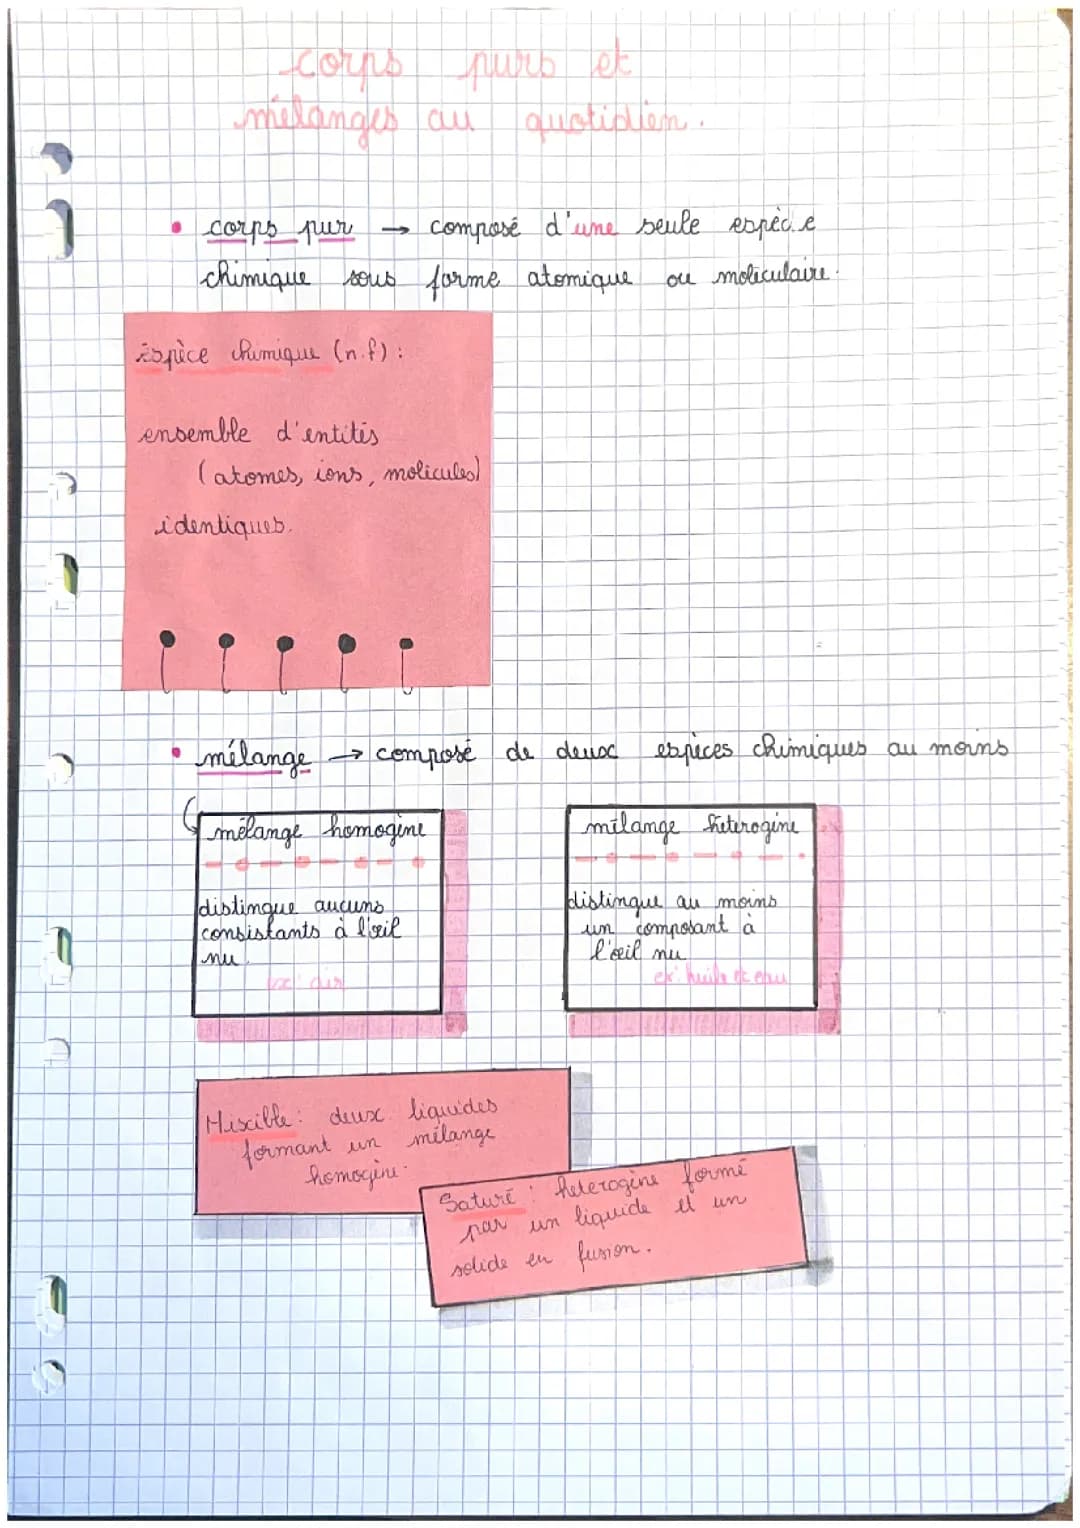 corps purs et
mélanges au quotidien.
• corps pur → composé d'une seule espèce
chimique sous forme atomique ou moléculaire.
Espèce chimique (n.f) :
ensemble d'entités
(atomes, ions, molécules)
identiques.
• mélange → composé de deux espèces chimiques au moins
mélange homogène
distingue aucuns
consistants à l'œil
nu.
ex: air
mélange héterogène
distingue au moins
un composant à
l'œil nu
ex: huile et eau
Miscible : deux liquides
formant un mélange
homogène.
Saturé : héterogène formé
par un liquide et un
solide en fusion.